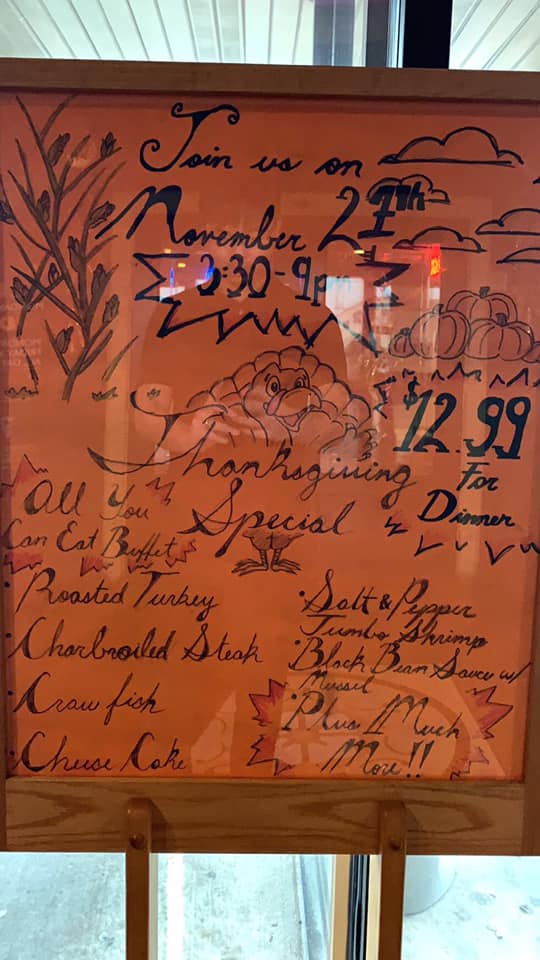 Join us on
November 27th
3:30-9pm
$12.99
For
Dinner
Thanksgiving
Special
All You
Can Eat Buffet
• Roasted Turkey
• Charbroiled Steak
• Craw fish
• Cheese Cake
• Salt & Pepper
Jumbo Shrimp
• Black Bean Sauce w/
Mussel
• Plus Much
More!!